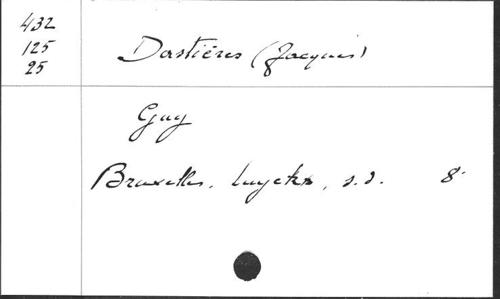 432
125
25
Dastières (Jacques)
Guy
Bruxelles, Luyckx, s.d. 8°